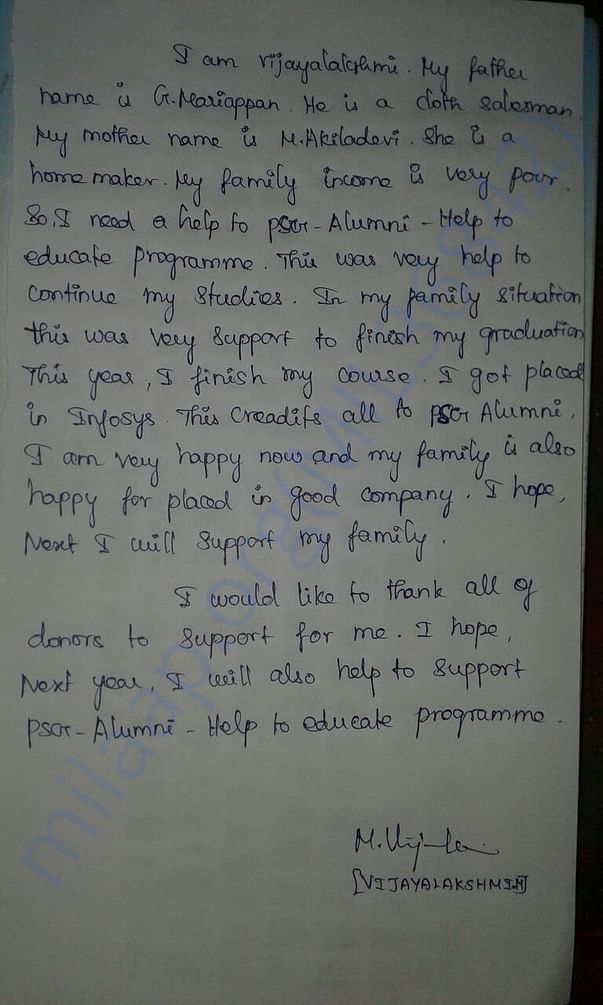 I am Vijayalakshmi. My father
name is G.Mariappan. He is a cloth salesman.
My mother name is M.Akiladevi. She is a
homemaker. My family income is very poor.
So, I need a help to PSG-Alumni-Help to
educate programme. This was very help to
continue my studies. In my family situation
this was very support to finish my graduation
This year, I finish my course. I got placed
in Infosys. This Creadits all to PSG Alumni.
I am very happy now and my family is also
happy for placed in good company. I hope,
Next I will support my family.
I would like to thank all of
donors to support for me. I hope,
Next year, I will also help to support
PSG-Alumni-Help to educate programme.
[VIJAYALAKSHMI.M]
milaap.org